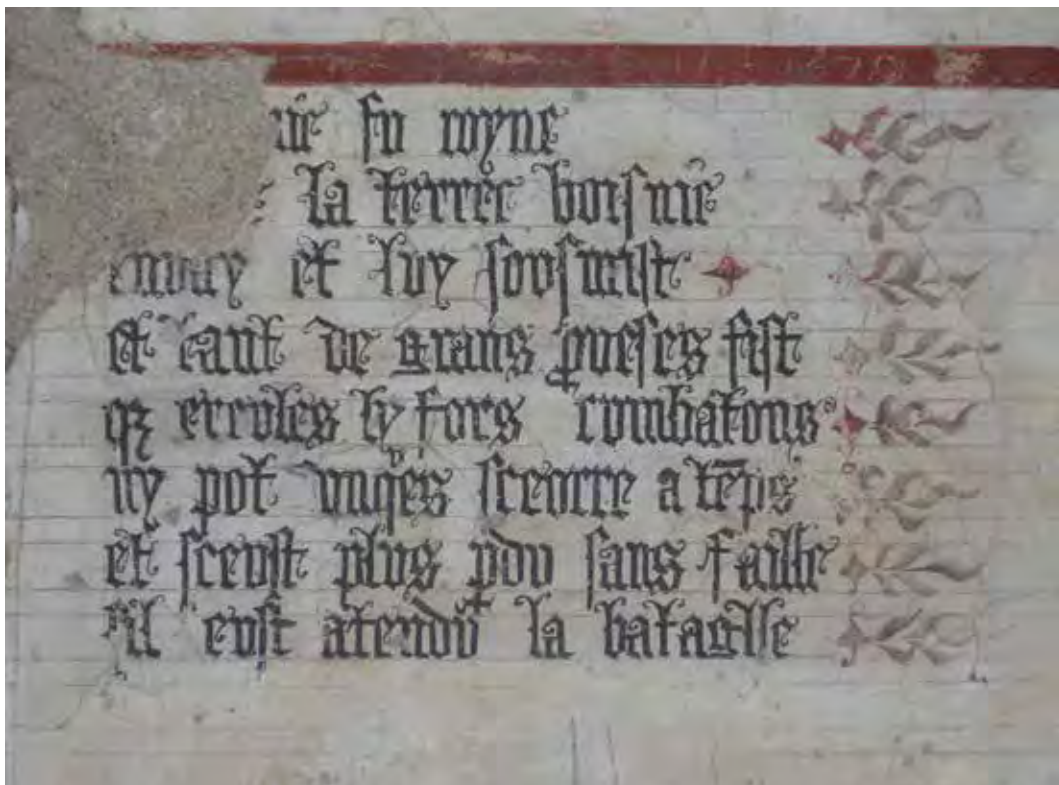 fu royne
la terre voisine
et luy sousmist
et tant de grans proeses fist
q ercules ly fors combatons
ny pot unqes sceurre a tēps
et sceust plus pdu sans faille
sil eust atendu la bataglle